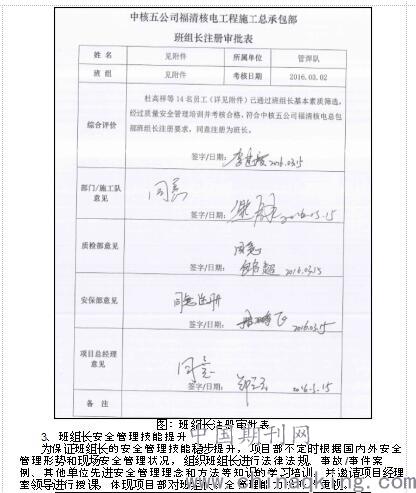 中核五公司福清核电工程施工总承包部
班组长注册审批表
姓 名 见附件 所属单位 管理队
班 组 见附件 考核日期 2016.03.02
综合评价
杜高祥等14名员工(详见附件)已通过班组长基本素质筛选，
经过质量安全管理培训并考核合格，符合中核五公司福清核电总包
部班组长注册要求，同意注册为班长。
签字/日期: 2016.03.15
部门/施工队
意见
同意
签字/日期: 2016.03.15
质检部意见
同意
签字/日期: 2016.03.15
安保部意见
同意注册
签字/日期: 2016.03.15
项目总经理
意见
同意
签字/日期: 2016.3.15
备 注
图: 班组长注册审批表。
中国期刊网
3、班组长安全管理技能提升
为保证班组长的安全管理技能稳步提升，项目部不定时根据国内外安全
管理形势和现场安全管理状况，组织班组长进行法律法规、事故/事件案
例、其他单位先进安全管理理念和方法等知识的学习培训，并邀请项目经理
室领导进行授课，体现项目部对班组长安全管理能力培养的重视。